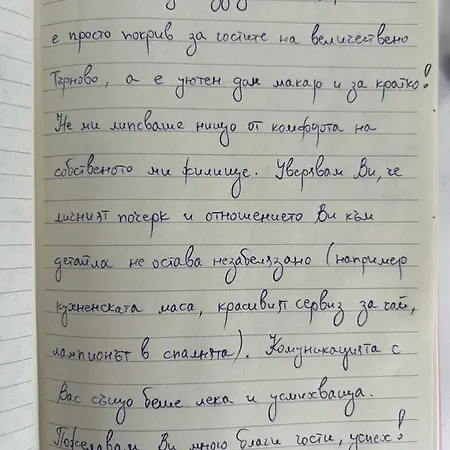 е просто покрив за гостите на величествено
Търново, а е уютен дом макар и за кратко!
Не ми липсваше нищо от комфорта на
собственото ми жилище. Уверявам Ви, че
личният почерк и отношението Ви към
детайла не остава незабелязано (например
кухненската маса, красивият сервиз за чай,
лампионът в спалнята). Комуникацията с
Вас също беше лека и усмихваща.
Пожелавам Ви много благи гости, успех!